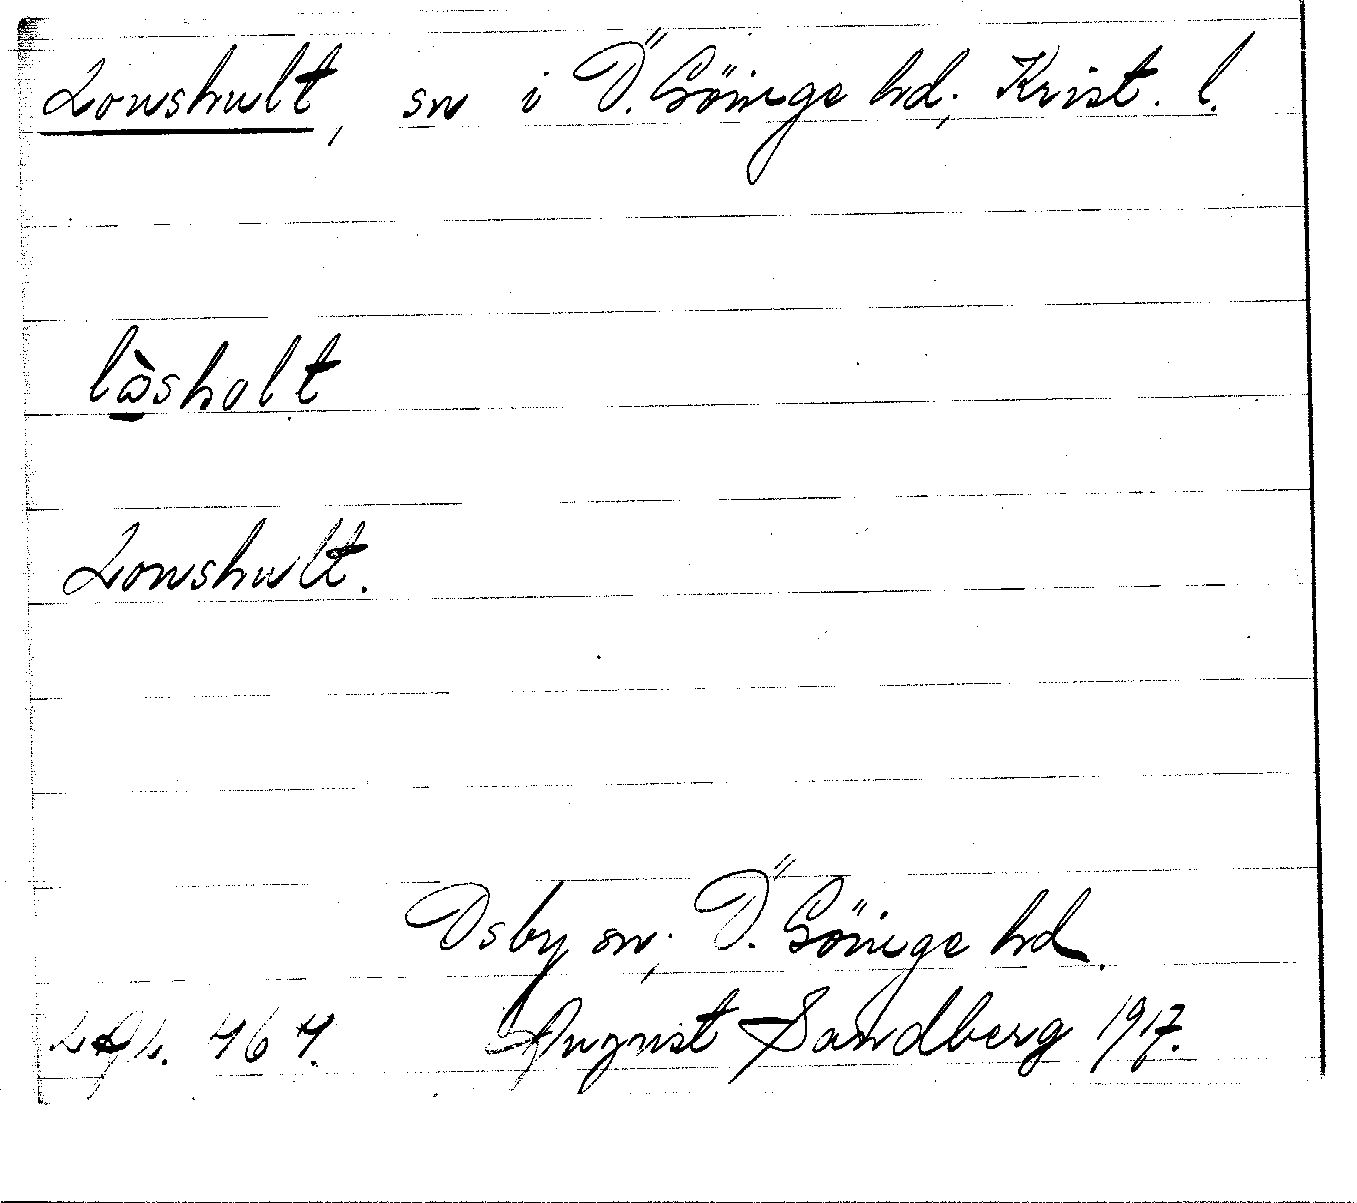 Lonshult, sn i Ö. Göinge hd; Krist. l.
låsholt
Lonshult.
Osby sn; Ö. Göinge hd.
464. August Sandberg 1917.